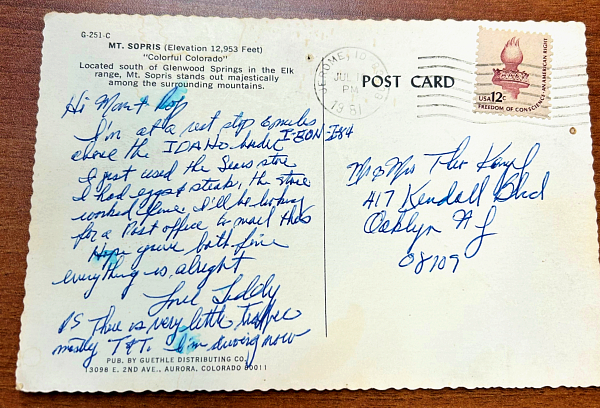 G-251-C
MT. SOPRIS (Elevation 12,953 Feet)
"Colorful Colorado"
Located south of Glenwood Springs in the Elk
range, Mt. Sopris stands out majestically
among the surrounding mountains.
Hi Mom & Pop
I'm at a rest stop 2 miles
above the IDAHO border I-80N I-84
I just used the Sears stove
I had eggs & steak, the stove
worked fine I'll be looking
for a Post office to mail this
Hope you're both fine
everything is alright
Love Teddy
PS There is very little traffic
mostly T&T. I'm driving now
PUB. BY GUETHLE DISTRIBUTING CO.
13098 E. 2ND AVE., AURORA, COLORADO 80011
JEROME, ID
PM
1981
POST CARD
USA 12c
FREEDOM OF CONSCIENCE-AN AMERICAN RIGHT
Mr & Mrs Theo
417 Kendall Blvd
Oaklyn NJ
08109